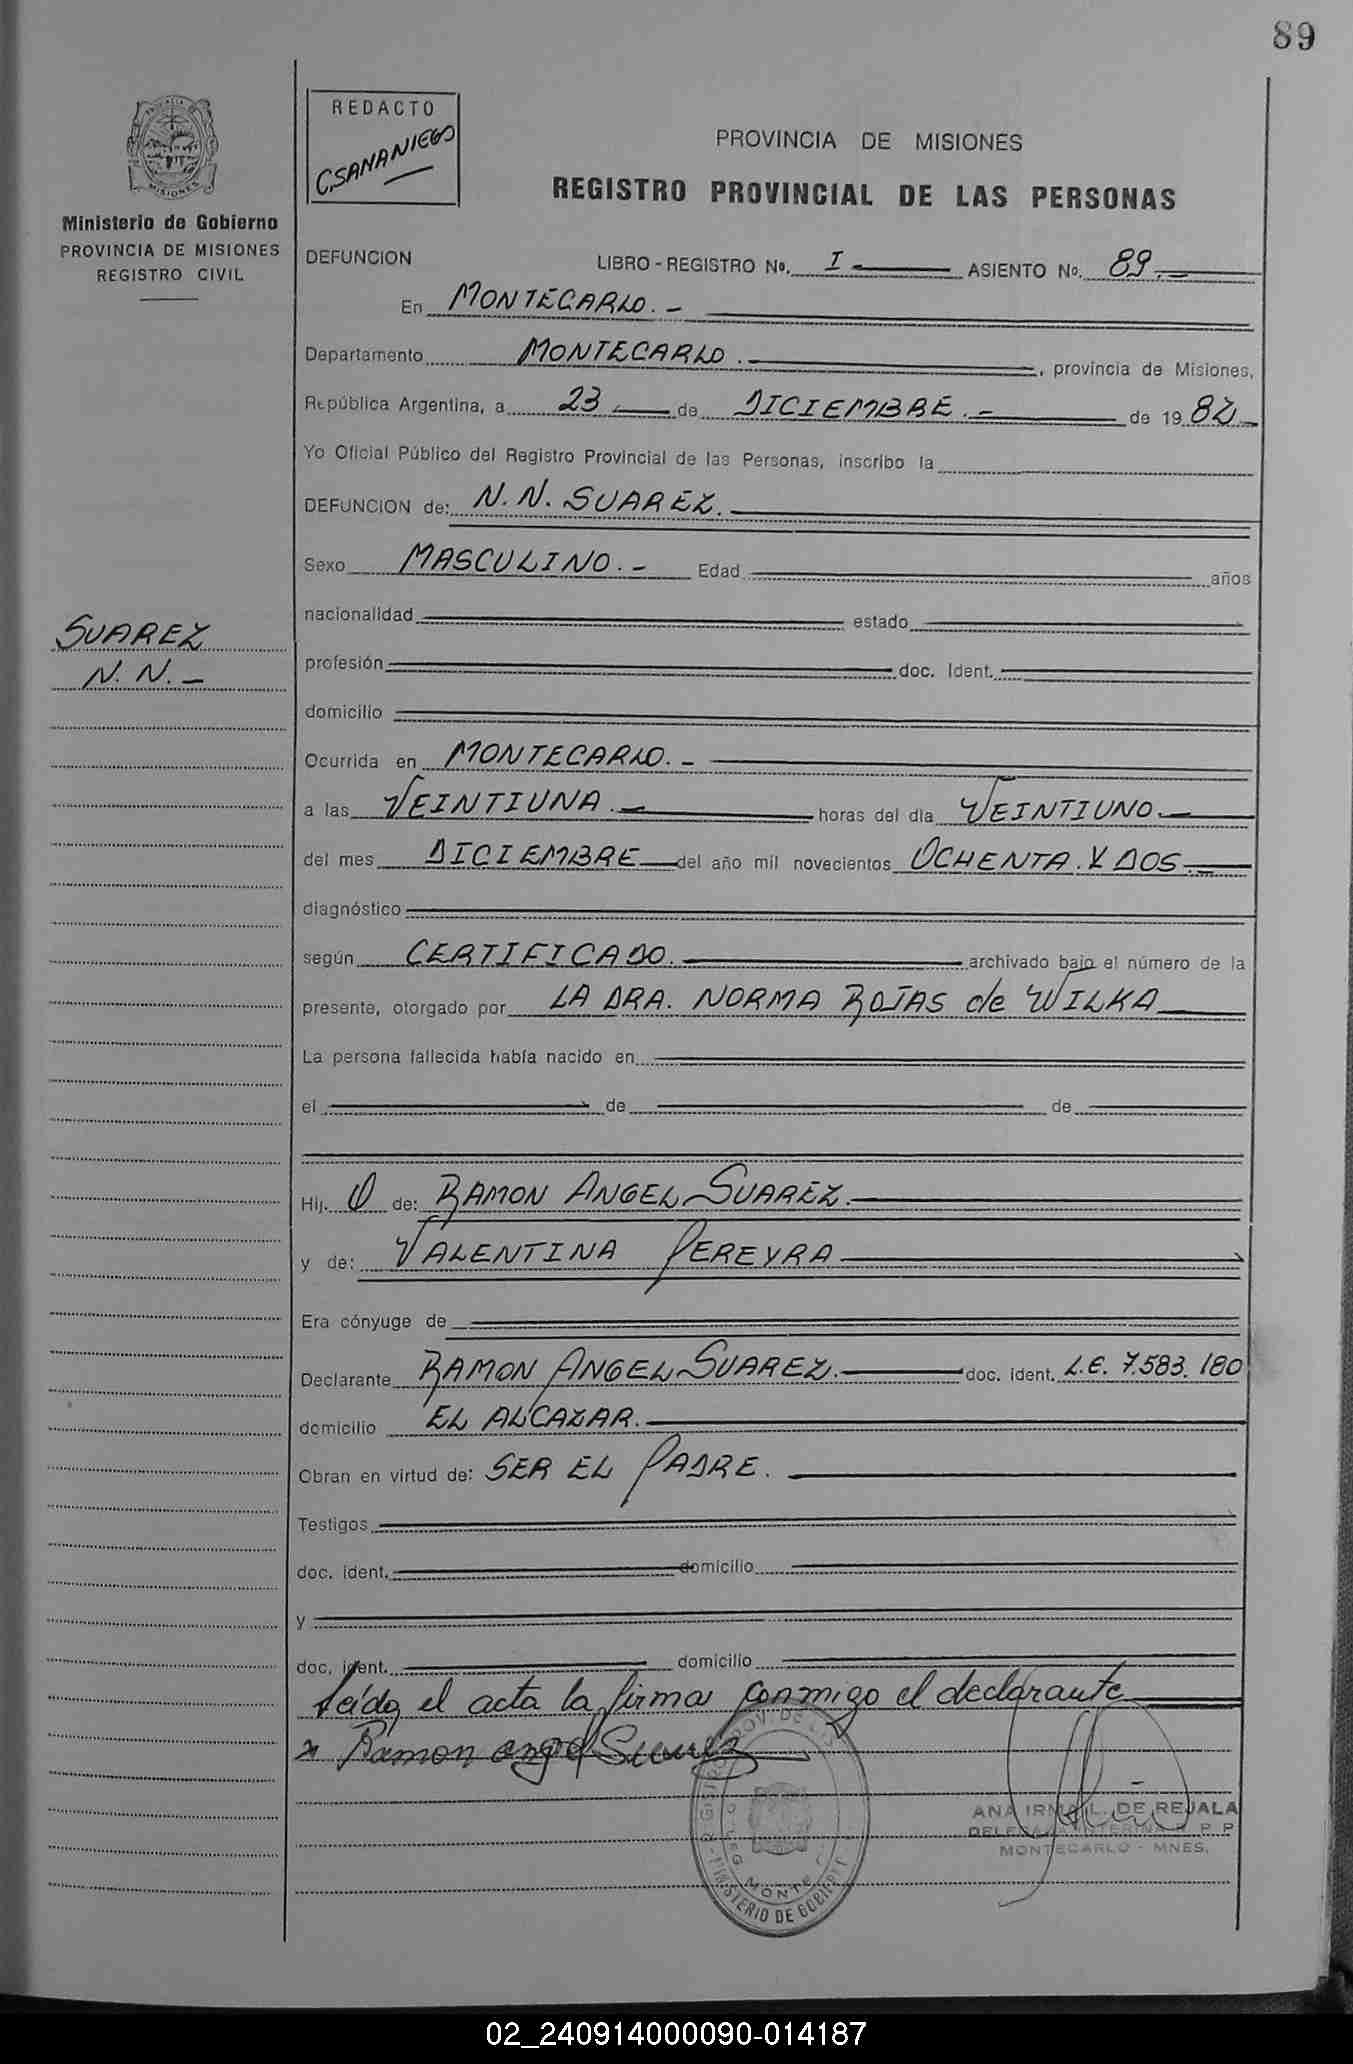 89
REDACTO
CSANANIEGO
PROVINCIA DE MISIONES
REGISTRO PROVINCIAL DE LAS PERSONAS
MISIONES
Ministerio de Gobierno
PROVINCIA DE MISIONES
REGISTRO CIVIL
DEFUNCION LIBRO - REGISTRO No. I ASIENTO No. 89.-
En MONTECARLO.-
Departamento MONTECARLO. , provincia de Misiones,
República Argentina, a 23 de DICIEMBRE.- de 19 82-
Yo Oficial Público del Registro Provincial de las Personas, inscribo la
DEFUNCION de: N.N. SUAREZ.
Sexo MASCULINO.- Edad años
nacionalidad estado
SUAREZ
N.N.-
profesión doc. Ident.
domicilio
Ocurrida en MONTECARLO.-
a las VEINTIUNA.- horas del día VEINTIUNO.-
del mes DICIEMBRE del año mil novecientos OCHENTA Y DOS.-
diagnóstico
según CERTIFICADO. archivado bajo el número de la
presente, otorgado por LA DRA. NORMA ROJAS de WILKA
La persona fallecida había nacido en
el de de
Hij. O de: RAMON ANGEL SUAREZ.
y de: VALENTINA PEREYRA
Era cónyuge de
Declarante RAMON ANGEL SUAREZ. doc. ident. L.E. 7.583.180
domicilio EL ALCAZAR.
Obran en virtud de: SER EL PADRE.
Testigos
doc. ident. domicilio
y
doc. ident. domicilio
Leída el acta la firma conmigo el declarante
x Ramon angel Suarez
ANA IRMA L. DE REJALA
DELEGADA INTERINA R. P. P.
MONTECARLO - MNES.
MINISTERIO DE GOBIERNO
02_240914000090-014187